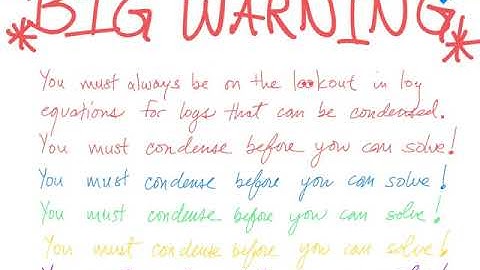 *BIG WARNING*
You must always be on the lookout in log
equations for logs that can be condensed.
You must condense before you can solve!
You must condense before you can solve!
You must condense before you can solve!
You must condense before you can solve!